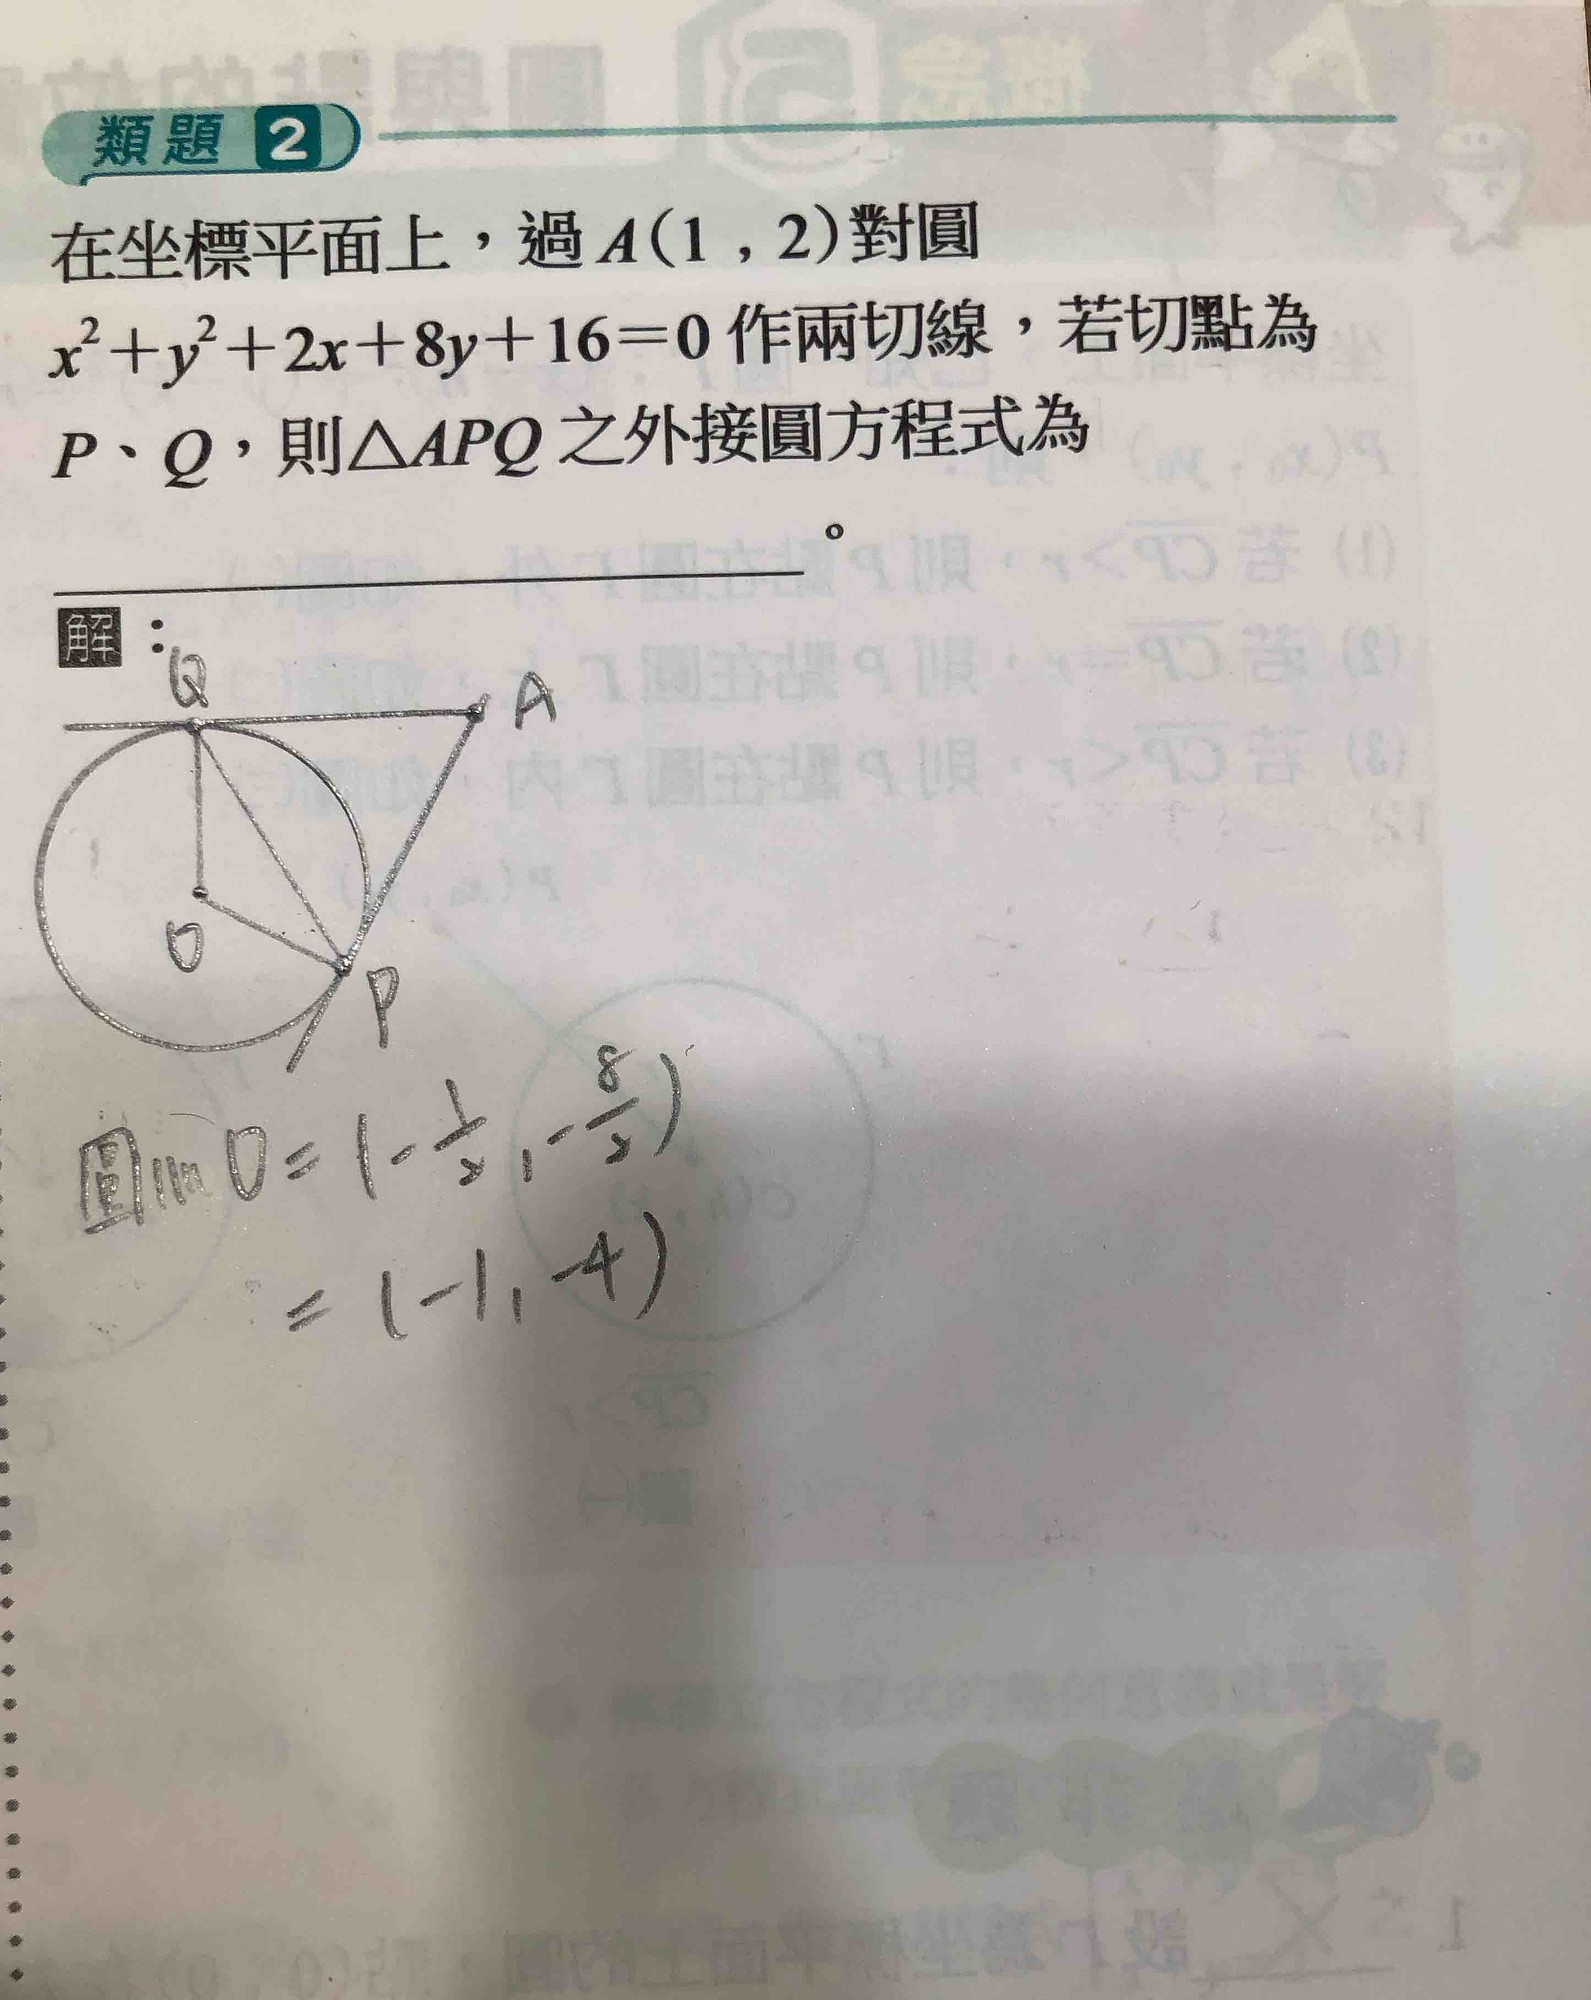 類題 2
在坐標平面上，過A(1，2)對圓
x²+y²+2x+8y+16=0 作兩切線，若切點為
P、Q，則△APQ之外接圓方程式為
。
解：
Q
A
O
P
O=(-1/2,-8/2)
=(-1,-4)